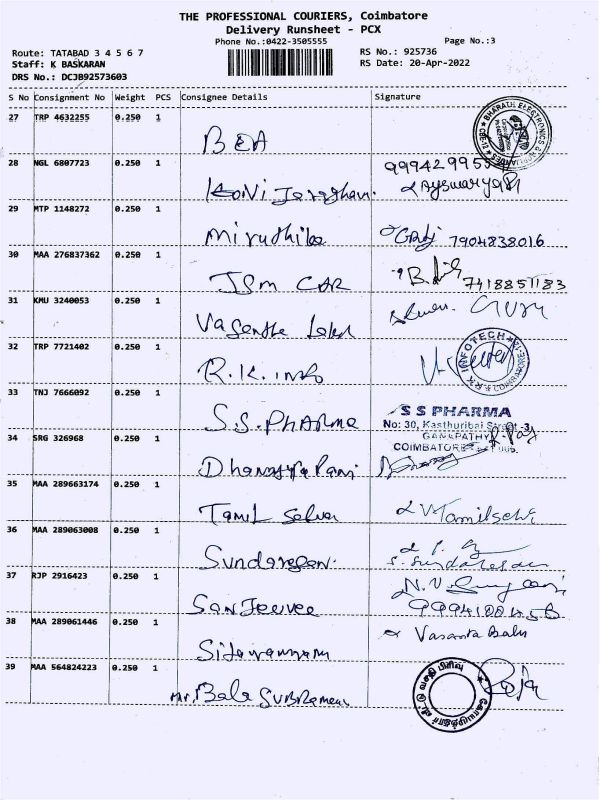 THE PROFESSIONAL COURIERS, Coimbatore
Delivery Runsheet - PCX
Phone No.:0422-3505555
Page No.:3
Route: TATABAD 3 4 5 6 7
RS No.: 925736
Staff: K BASKARAN
RS Date: 20-Apr-2022
DRS No.: DCJB92573603
S No Consignment No Weight PCS Consignee Details Signature
27 TRP 4632255 0.250 1
BHARATH ELECTRONICS & APPLIANCES
28 NGL 6807723 0.250 1
29 MTP 1148272 0.250 1
Miruthika 7904838016
30 MAA 276837362 0.250 1
JSM CAR 7418851183
31 KMU 3240053 0.250 1
Vasantha
32 TRP 7721402 0.250 1
R.K. Info R K INFOTECH
33 TNJ 7666092 0.250 1
S.S. PHARMA S S PHARMA
No: 30, Kasthuribai Street -3,
34 SRG 326968 0.250 1
GANAPATHY
COIMBATORE
35 MAA 289663174 0.250 1
Tamil Selvan
36 MAA 289063008 0.250 1
Sundaresan S. Sundaresan
37 RJP 2916423 0.250 1
Sanjeevee
38 MAA 289061446 0.250 1
Vasanta Balu
Sitaramam
39 MAA 564824223 0.250 1
Mr. Bala